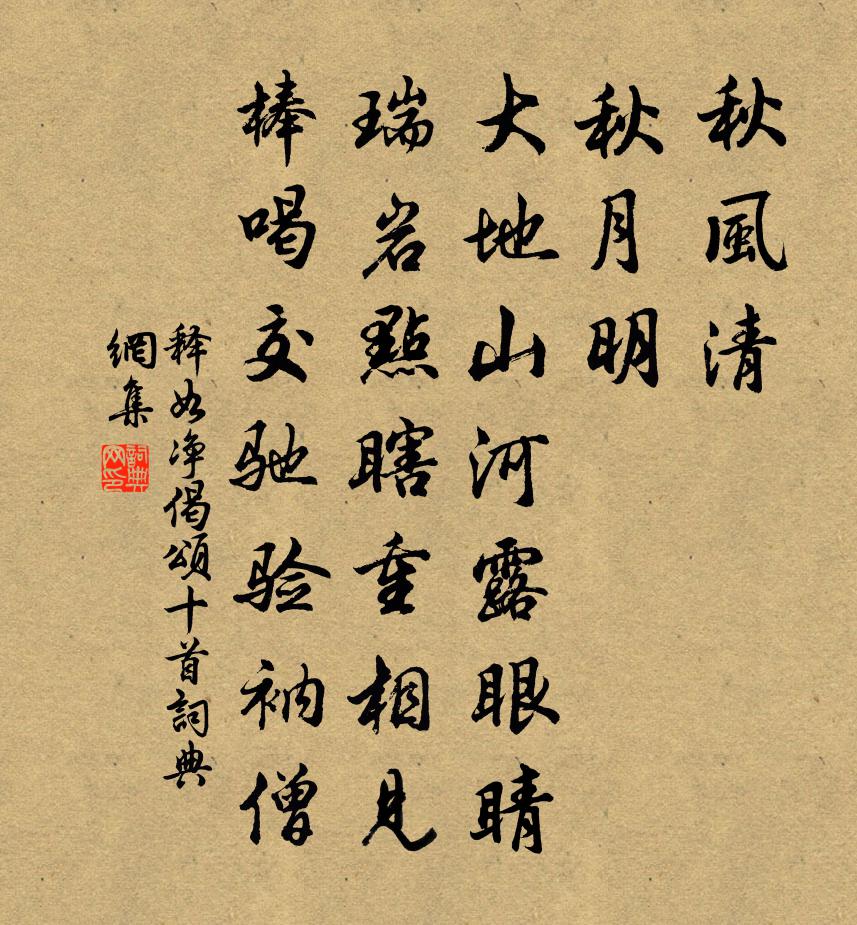 秋風清
秋月明
大地山河露眼睛
瑞岩點瞎重相見
棒喝交驰验衲僧
释如净偈頌十首詞典
網集
詞典
网印